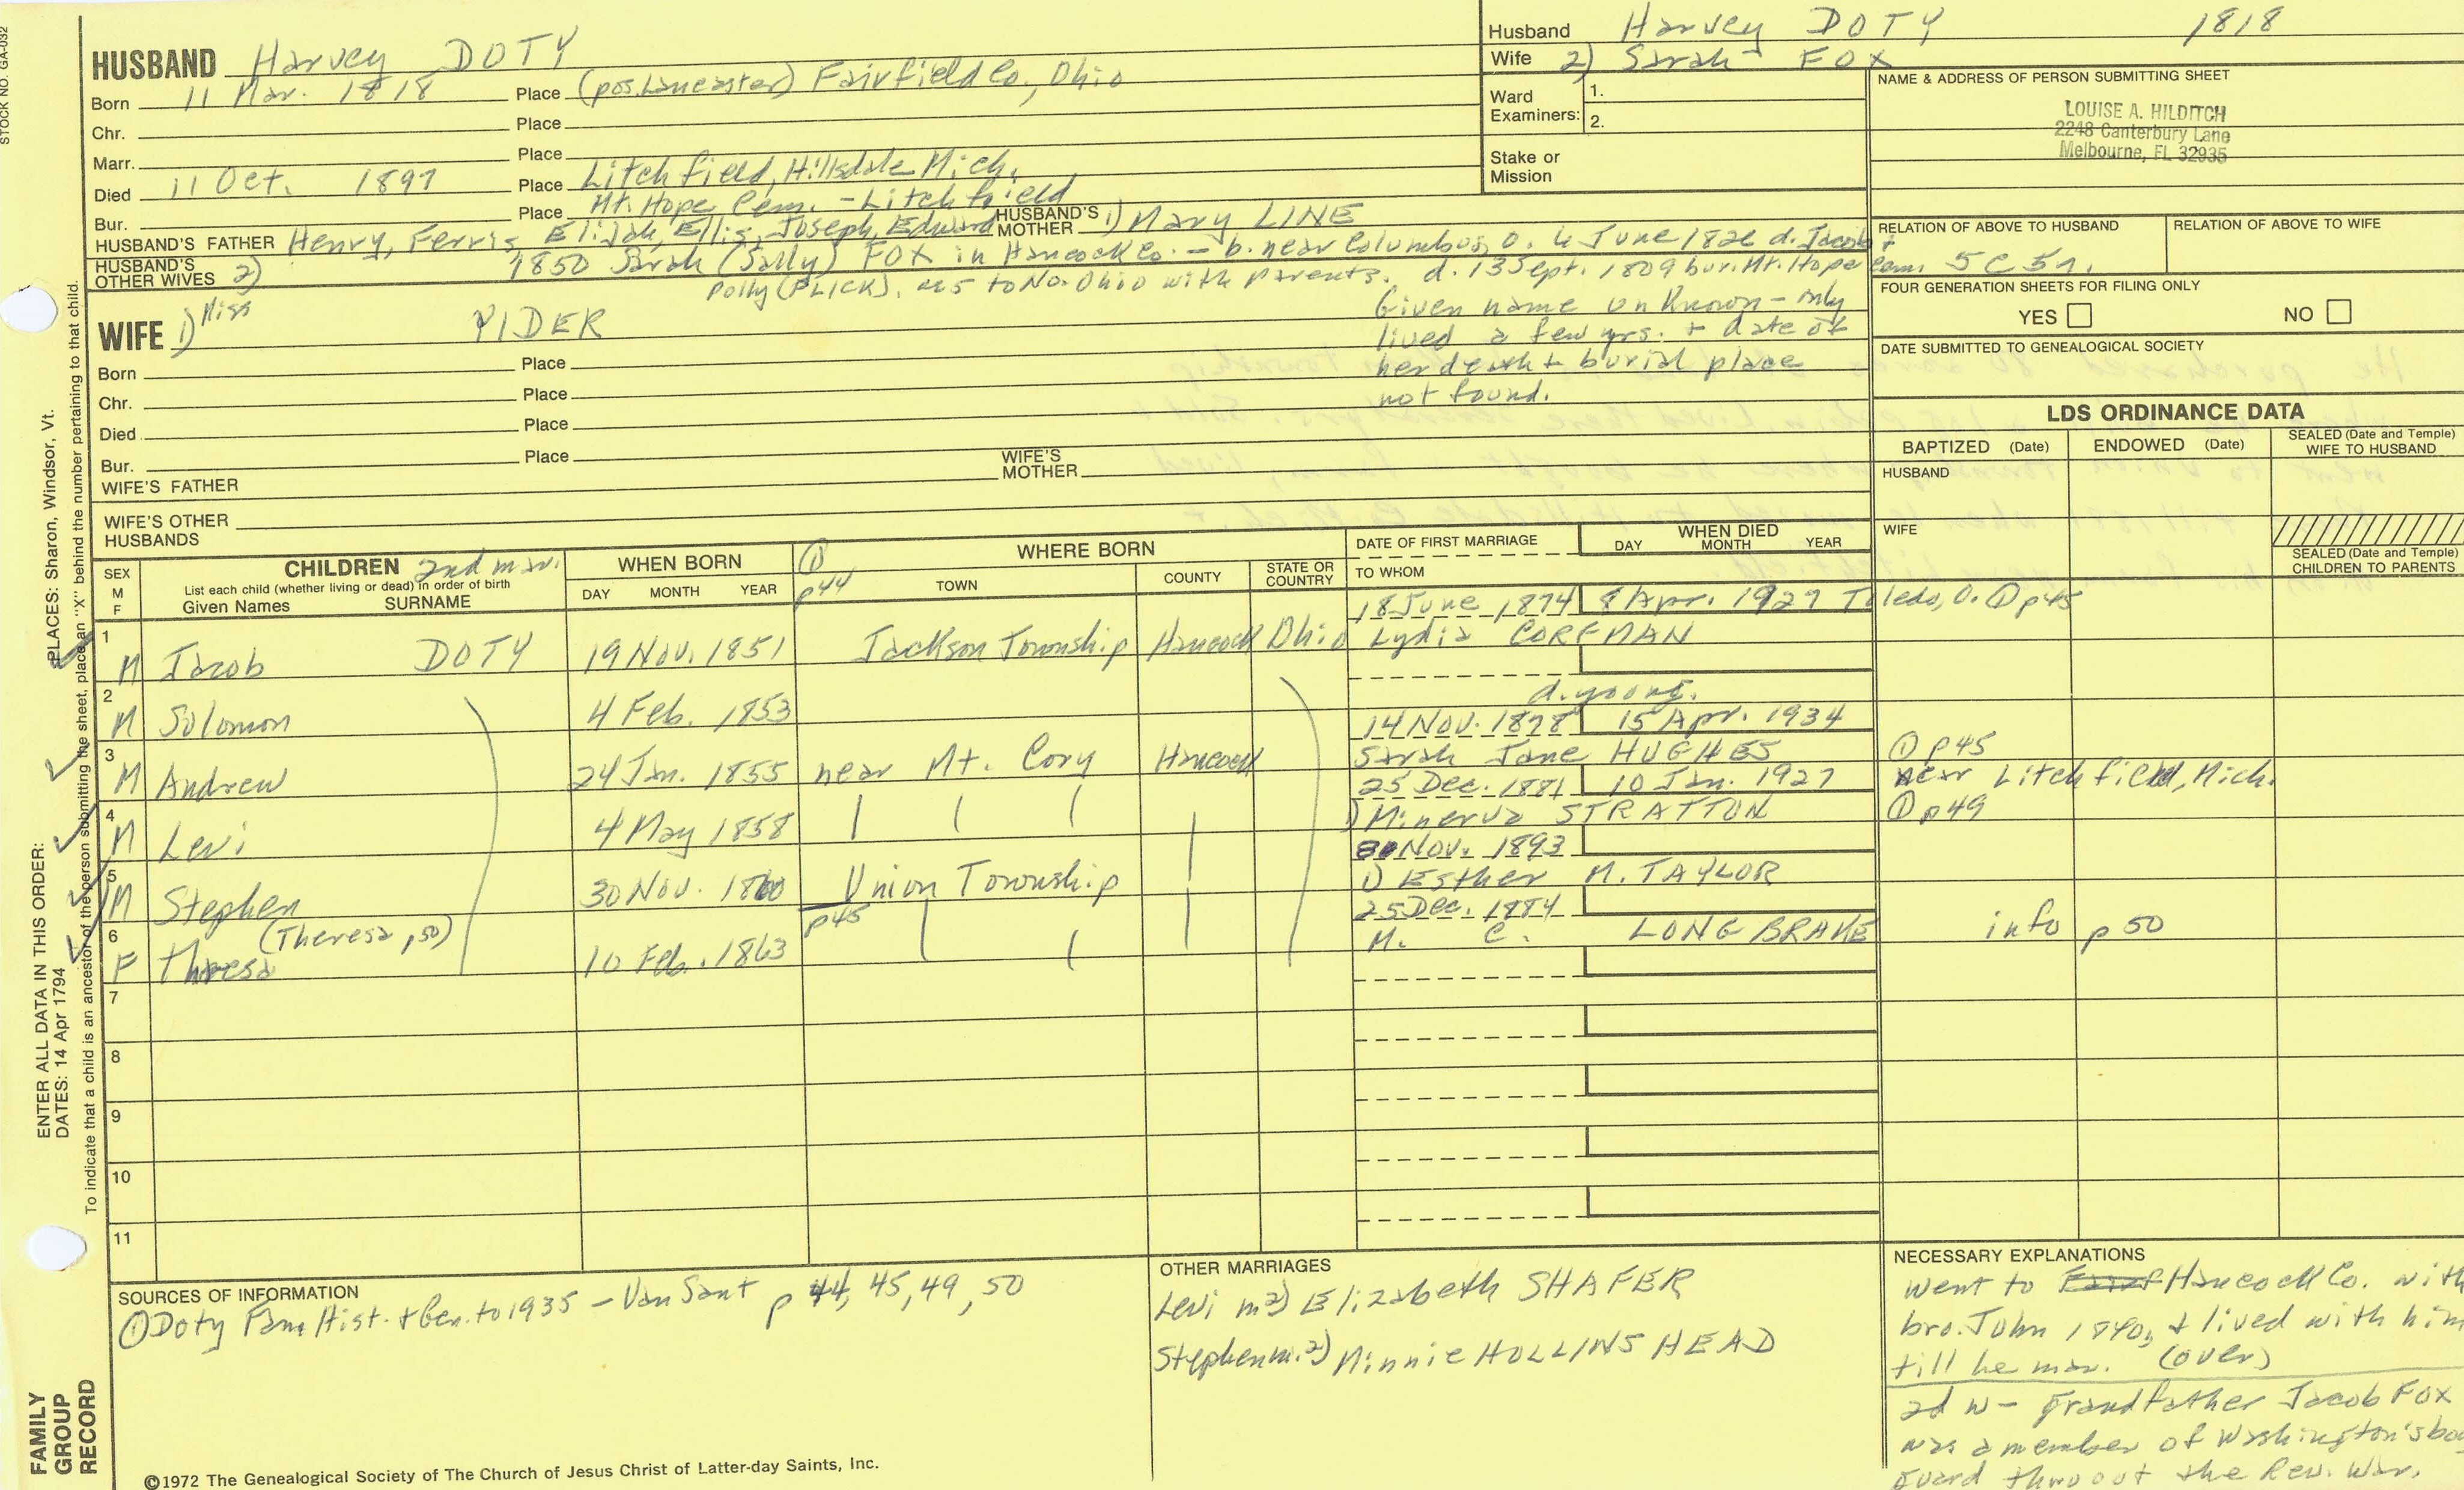 STOCK NO. GA-032
HUSBAND Harvey DOTY
Born 11 Mar. 1818 Place (pos. Lancaster) Fairfield Co., Ohio
Chr. Place
Marr. Place
Died 11 Oct. 1897 Place Litchfield, Hillsdale Mich.
Bur. Place Mt. Hope Cem. - Litchfield
HUSBAND'S FATHER Henry, Ferris, Elijah, Ellis, Joseph, Edward HUSBAND'S MOTHER 1) Mary LINE
HUSBAND'S OTHER WIVES 2) 1850 Sarah (Sally) FOX in Hancock Co. - b. near Columbus, O. 6 June 1826 d. Jacob +
Polly (FLICK). as 5 to No. Ohio with parents. d. 13 Sept. 1809 bur. Mt. Hope Cem.
WIFE 1) Miss PIDER
Given name unknown - only
lived a few yrs. + date of
her death + burial place
not found.
Born Place
Chr. Place
Died Place
Bur. Place
WIFE'S FATHER WIFE'S MOTHER
WIFE'S OTHER HUSBANDS
Husband Harvey DOTY 1818
Wife 2) Sarah FOX
Ward Examiners: 1.
2.
Stake or Mission
NAME & ADDRESS OF PERSON SUBMITTING SHEET
LOUISE A. HILDITCH
2248 Canterbury Lane
Melbourne, FL 32935
RELATION OF ABOVE TO HUSBAND RELATION OF ABOVE TO WIFE
5C5r.
FOUR GENERATION SHEETS FOR FILING ONLY
YES NO
DATE SUBMITTED TO GENEALOGICAL SOCIETY
LDS ORDINANCE DATA
BAPTIZED (Date) ENDOWED (Date) SEALED (Date and Temple) WIFE TO HUSBAND
HUSBAND
WIFE
SEALED (Date and Temple) CHILDREN TO PARENTS
SEX M F CHILDREN 2nd mar.
List each child (whether living or dead) in order of birth
Given Names SURNAME
WHEN BORN
DAY MONTH YEAR
① p44
WHERE BORN
TOWN COUNTY STATE OR COUNTRY
DATE OF FIRST MARRIAGE
TO WHOM
WHEN DIED
DAY MONTH YEAR
18 June 1874 8 Apr. 1927 Toledo, O. ① p45
1 M Jacob DOTY 19 Nov. 1851 Jackson Township Hancock Ohio Lydia CORFMAN
2 M Solomon 4 Feb. 1853 d. young.
14 Nov. 1878 15 Apr. 1934
3 M Andrew 24 Jan. 1855 near Mt. Cory Hancock Sarah Jane HUGHES ① p45
25 Dec. 1881 10 Jan. 1927 near Litchfield, Mich.
4 M Levi 4 May 1858 1) Minerva STRATTON ① p49
Nov. 1893
5 M Stephen 30 Nov. 1860 Union Township 1) Esther M. TAYLOR
p45 25 Dec. 1884
6 F Theresa (Theresa p50) 10 Feb. 1863 M. C. LONGBRAKE info p 50
7
8
9
10
11
SOURCES OF INFORMATION
① Doty Fam. Hist. + Gen. to 1935 - Van Sant p 44, 45, 49, 50
OTHER MARRIAGES
Levi m 2) Elizabeth SHAFER
Stephen m. 2) Minnie HOLLINSHEAD
NECESSARY EXPLANATIONS
went to Hancock Co. with
bro. John 1840, + lived with him
till he mar. (over)
2d w - Grandfather Jacob FOX
was a member of Washington's bo
guard thruout the Rev. War.
©1972 The Genealogical Society of The Church of Jesus Christ of Latter-day Saints, Inc.
FAMILY GROUP RECORD
ENTER ALL DATA IN THIS ORDER:
DATES: 14 Apr 1794
PLACES: Sharon, Windsor, Vt.
To indicate that a child is an ancestor of the person submitting the sheet, place an "X" behind the number pertaining to that child.